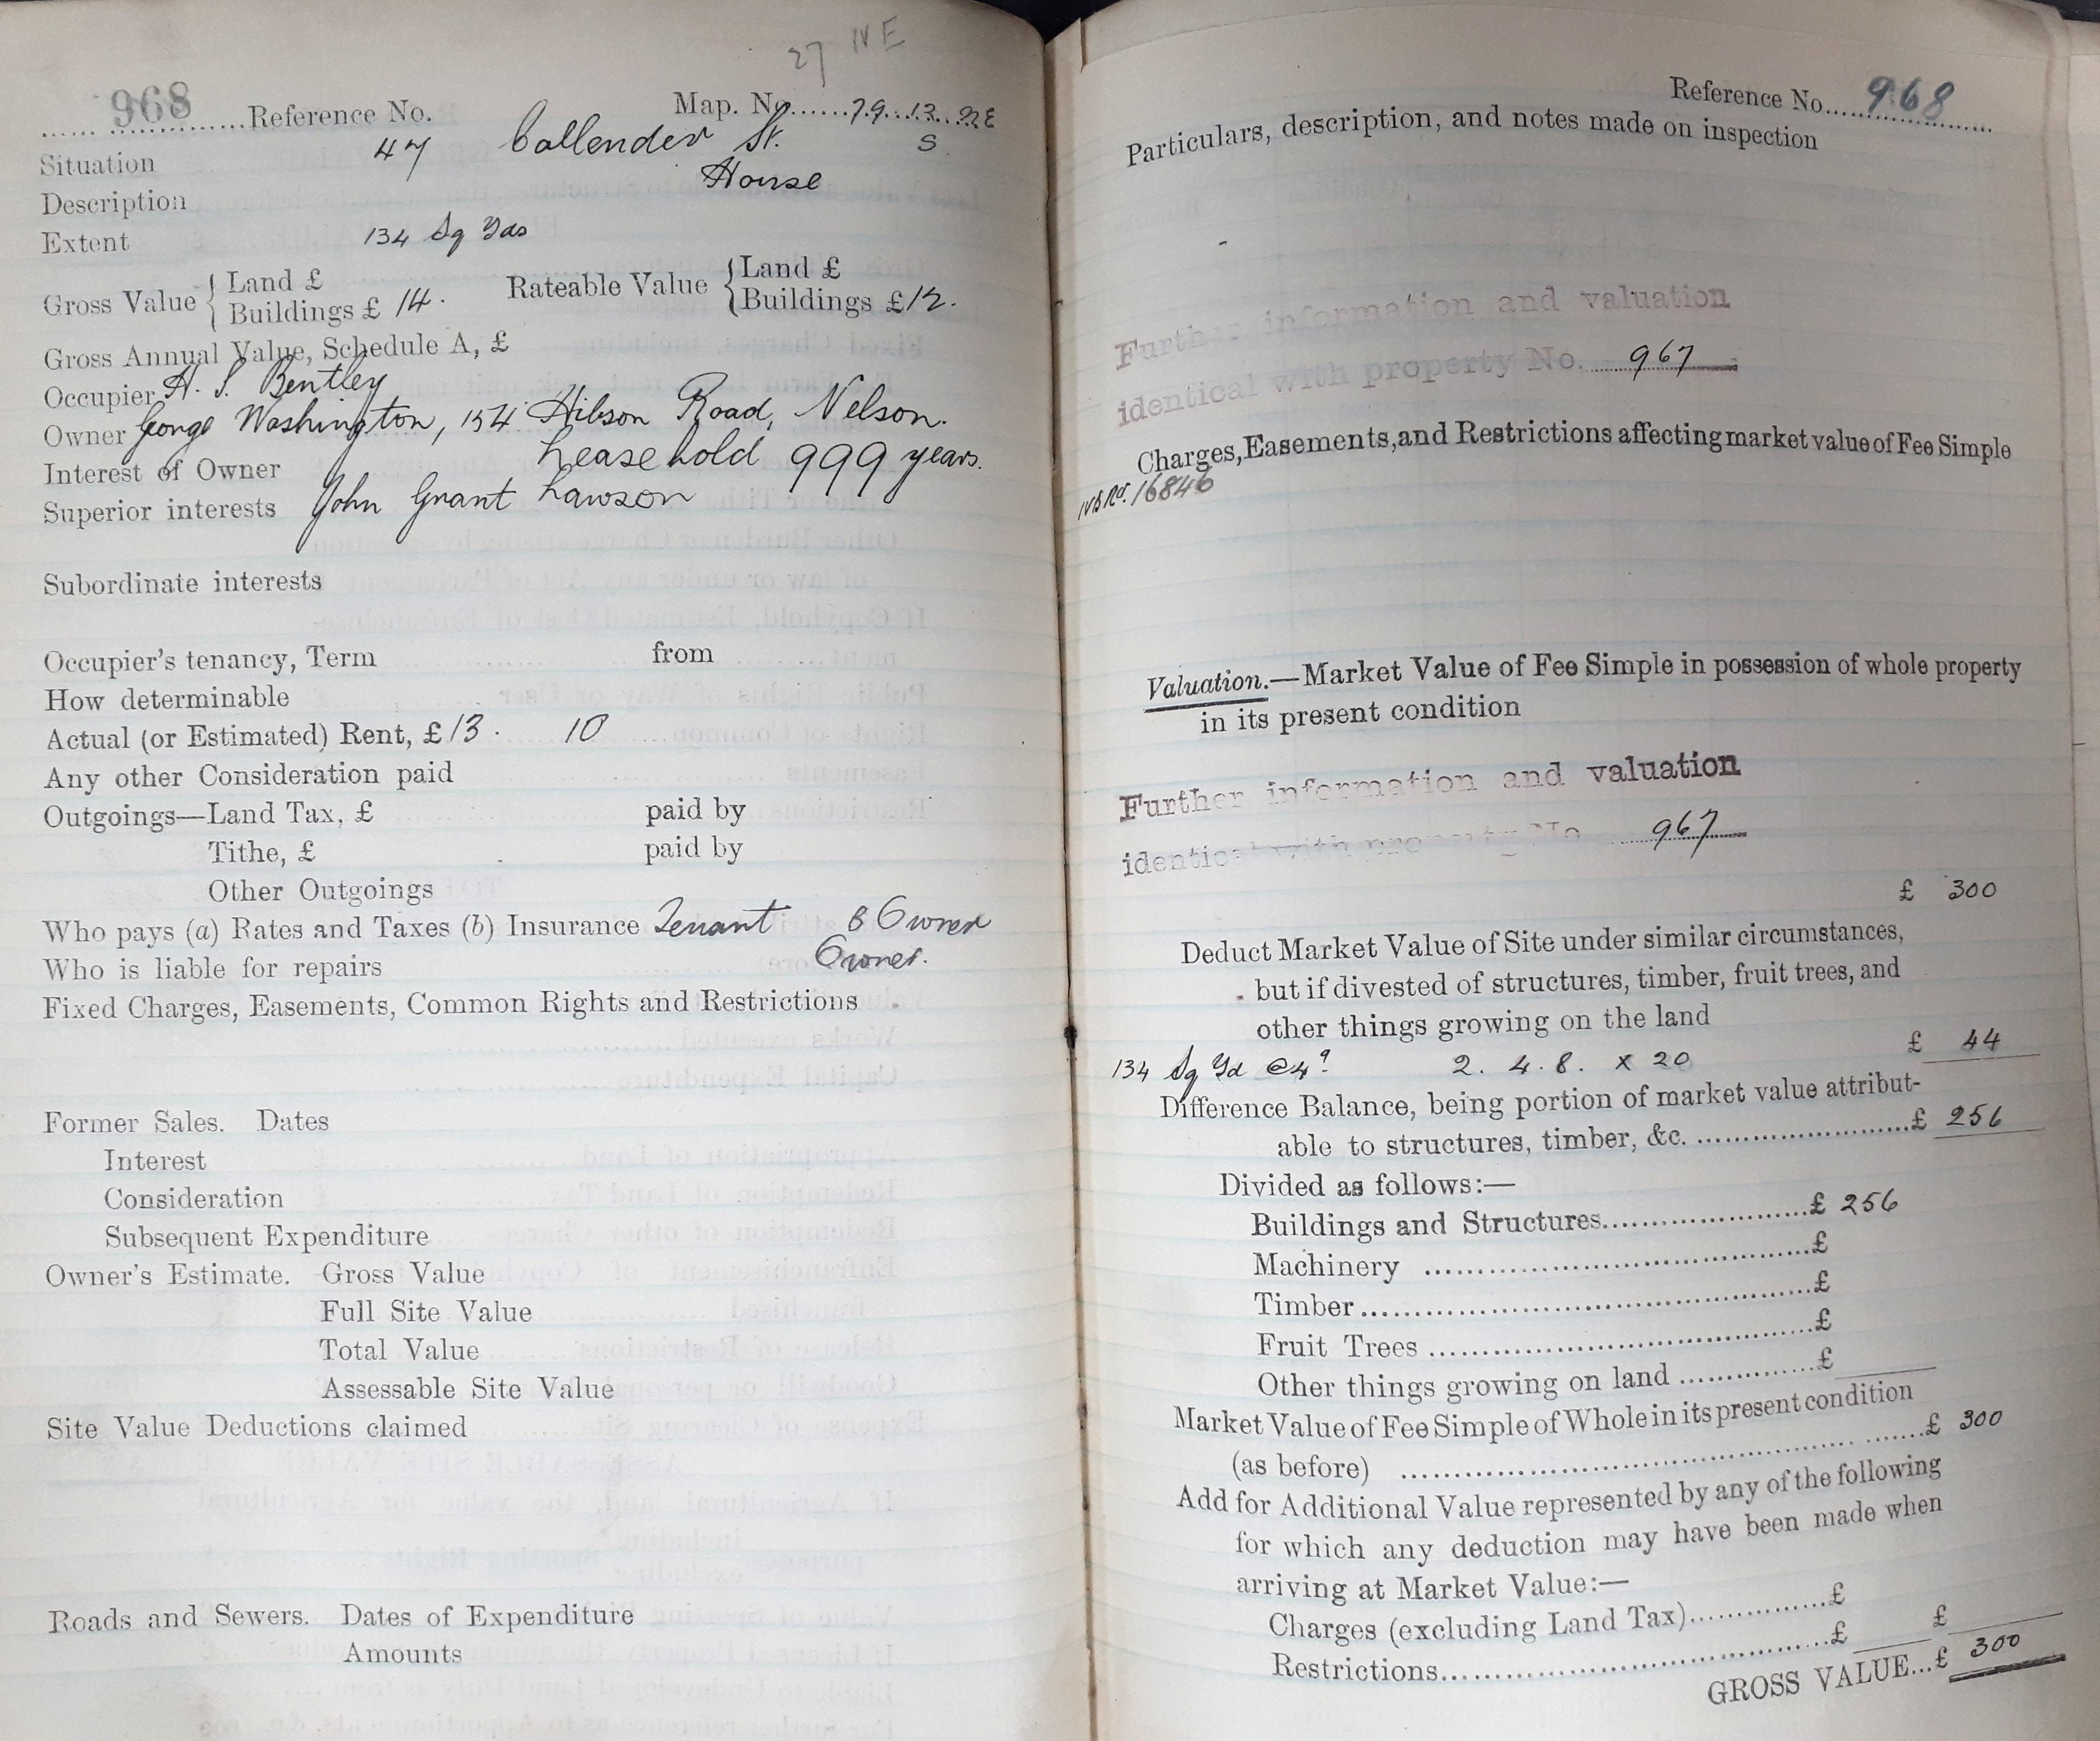 27 NE
968 Reference No. Map. No. 79.13.22E
Situation 47 Callender St. S.
Description House
Extent 134 Sq Yds
Gross Value { Land £
Buildings £ 14. Rateable Value { Land £
Buildings £12.
Gross Annual Value, Schedule A, £
Occupier H. S. Bentley
Owner George Washington, 154 Hibson Road, Nelson.
Interest of Owner Leasehold 999 years.
Superior interests John Grant Lawson
Subordinate interests
Occupier's tenancy, Term from
How determinable
Actual (or Estimated) Rent, £13. 10
Any other Consideration paid
Outgoings—Land Tax, £ paid by
Tithe, £ paid by
Other Outgoings
Who pays (a) Rates and Taxes (b) Insurance Tenant B Owner
Who is liable for repairs Owner.
Fixed Charges, Easements, Common Rights and Restrictions
Former Sales. Dates
Interest
Consideration
Subsequent Expenditure
Owner's Estimate. Gross Value
Full Site Value
Total Value
Assessable Site Value
Site Value Deductions claimed
Roads and Sewers. Dates of Expenditure
Amounts
Reference No. 968
Particulars, description, and notes made on inspection
Further information and valuation
identical with property No. 967
Charges, Easements, and Restrictions affecting market value of Fee Simple
16846
Valuation.—Market Value of Fee Simple in possession of whole property
in its present condition
Further information and valuation
identical with property No. 967
£ 300
Deduct Market Value of Site under similar circumstances,
but if divested of structures, timber, fruit trees, and
other things growing on the land
£ 44
134 Sq Yd @ 4d 2. 4. 8. x 20
Difference Balance, being portion of market value attribut-
able to structures, timber, &c. £ 256
Divided as follows:—
Buildings and Structures £ 256
Machinery £
Timber £
Fruit Trees £
Other things growing on land £
Market Value of Fee Simple of Whole in its present condition
(as before) £ 300
Add for Additional Value represented by any of the following
for which any deduction may have been made when
arriving at Market Value:—
Charges (excluding Land Tax) £
Restrictions £ £
GROSS VALUE...£ 300